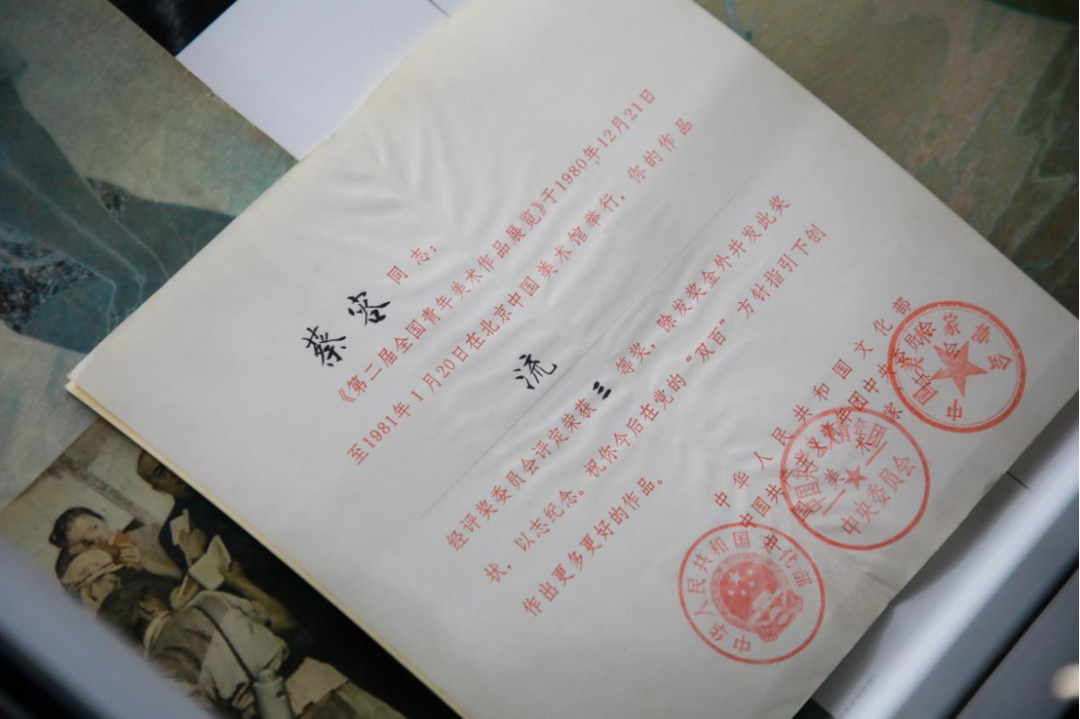 蔡容同志：
《第二届全国青年美术作品展览》于1980年12月21日
至1981年1月20日在北京中国美术馆举行，你的作品
流
经评奖委员会评定荣获三等奖，除发奖金外并发此奖
状，以志纪念。祝你今后在党的“双百”方针指引下创
作出更多更好的作品。
中华人民共和国文化部
中国共产主义青年团中央委员会
中国美术家协会
中华人民共和国文化部
中央委员会